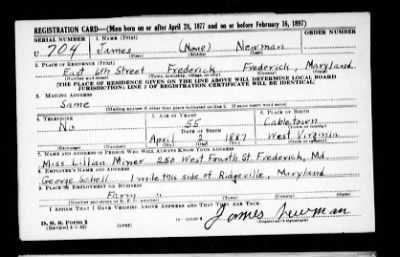 REGISTRATION CARD—(Men born on or after April 28, 1877 and on or before February 16, 1897)
SERIAL NUMBER 1. NAME (Print) ORDER NUMBER
U 704 James (None) Newman
(First) (Middle) (Last)
2. PLACE OF RESIDENCE (Print)
East 6th Street Frederick Frederick, Maryland
(Number and street) (Town, township, village, or city) (County) (State)
[THE PLACE OF RESIDENCE GIVEN ON THE LINE ABOVE WILL DETERMINE LOCAL BOARD
JURISDICTION; LINE 2 OF REGISTRATION CERTIFICATE WILL BE IDENTICAL]
3. MAILING ADDRESS
Same
[Mailing address if other than place indicated on line 2. If same insert word same]
4. TELEPHONE 5. AGE IN YEARS 6. PLACE OF BIRTH
No 55 Cabletown
DATE OF BIRTH (Town or county)
April 2 1887 West Virginia
(Mo.) (Day) (Yr.) (State or country)
7. NAME AND ADDRESS OF PERSON WHO WILL ALWAYS KNOW YOUR ADDRESS
Miss Lillian Miner 250 West Fourth St. Frederick, Md.
8. EMPLOYER'S NAME AND ADDRESS
George Schell 1 mile this side of Ridgeville, Maryland
9. PLACE OF EMPLOYMENT OR BUSINESS
Farm "
(Number and street or R. F. D. number) (Town) (County) (State)
I AFFIRM THAT I HAVE VERIFIED ABOVE ANSWERS AND THAT THEY ARE TRUE.
D. S. S. Form 1
(Revised 4-1-42) (over) James Newman
(Registrant's signature)